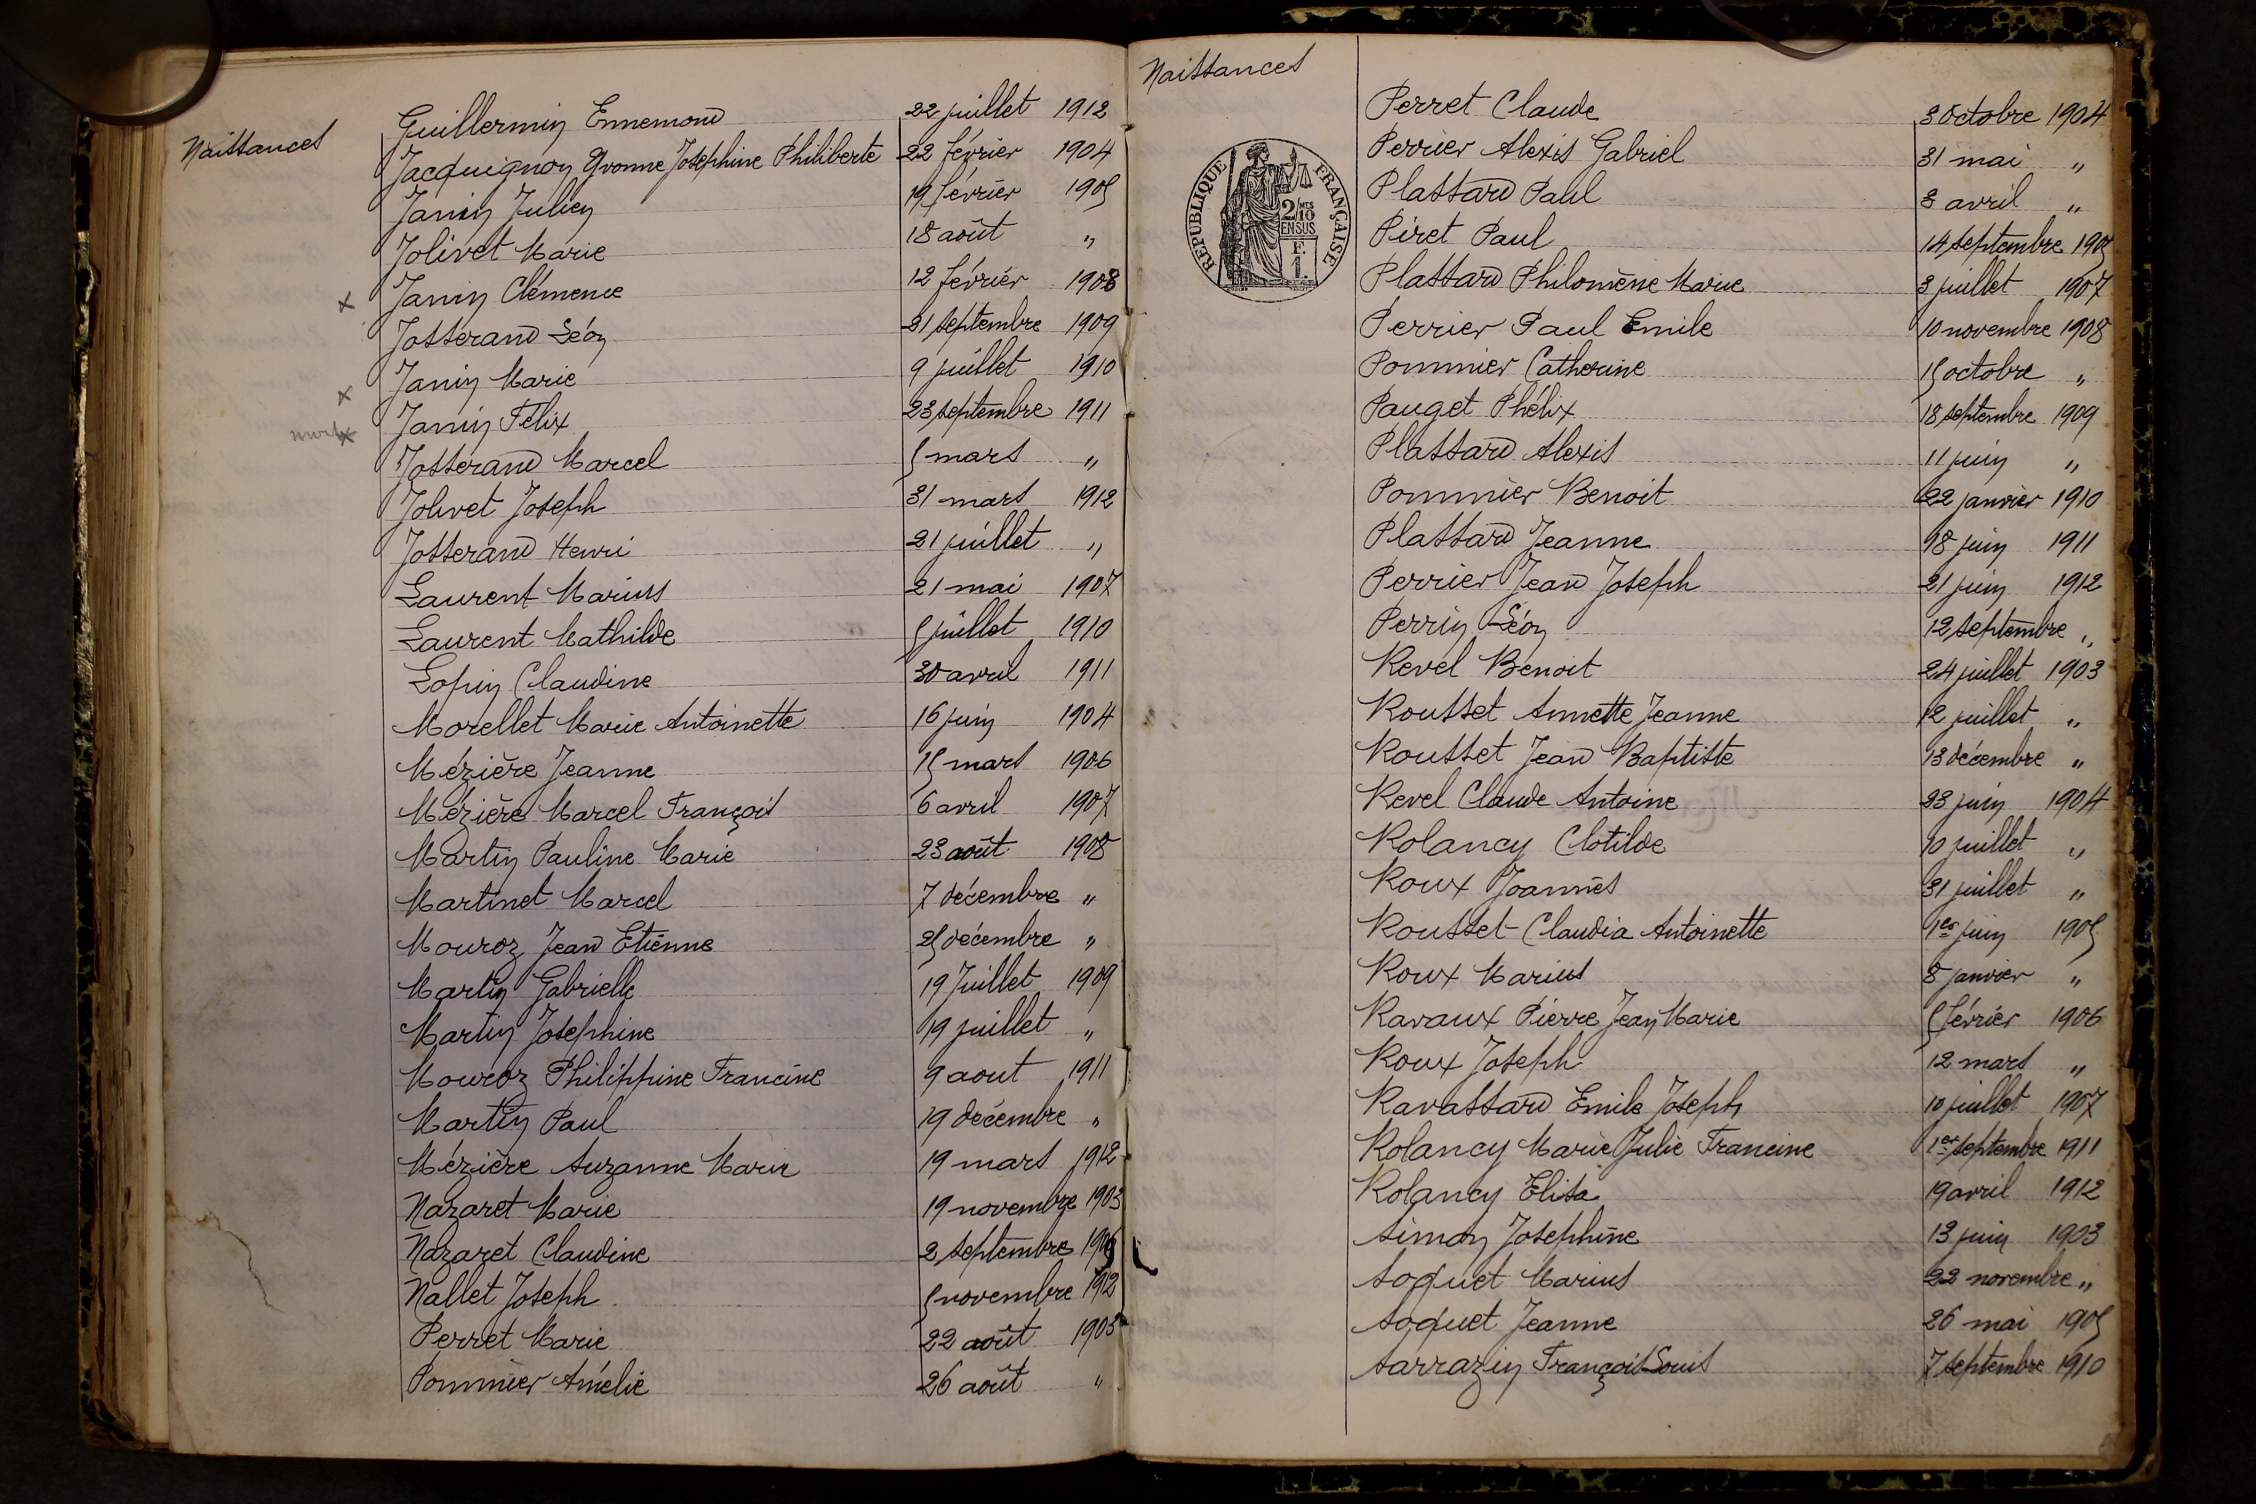 Naissances
Guillermin Ennemond 22 juillet 1912
Jacquignon Yvonne Joséphine Philiberte 22 février 1904
Janin Julien 19 février 1905
Jolivet Marie 18 août "
x Janin Clémence 12 février 1908
Josserand Léon 21 septembre 1909
x Janin Marie 9 juillet 1910
x Janin Félix 23 septembre 1911
Josserand Marcel 5 mars "
Jolivet Joseph 31 mars 1912
Josserand Henri 21 juillet "
Laurent Marius 21 mai 1907
Laurent Mathilde 5 juillet 1910
Lopin Claudine 30 avril 1911
Morellet Marie Antoinette 16 juin 1904
Mézière Jeanne 15 mars 1906
Mézière Marcel François 6 avril 1907
Martin Pauline Marie 23 août 1908
Martinet Marcel 7 décembre "
Mouroz Jean Etienne 25 décembre "
Martin Gabrielle 19 Juillet 1909
Martin Joséphine 19 juillet "
Mouroz Philippine Francine 9 aout 1911
Martin Paul 19 décembre "
Mézière Suzanne Marie 19 mars 1912
Nazaret Marie 19 novembre 1903
Nazaret Claudine 2 septembre
Nallet Joseph 5 novembre 1912
Perret Marie 22 août 1903
Pommier Amélie 26 août "
Naissances
REPUBLIQUE FRANÇAISE
2/10 MES
EN SUS
F.
1.
Perret Claude 3 octobre 1904
Perrier Alexis Gabriel 31 mai "
Plassard Paul 3 avril "
Piret Paul 14 septembre 1905
Plassard Philomène Marie 3 juillet 1907
Perrier Paul Emile 10 novembre 1908
Pommier Catherine 15 octobre "
Pauget Phélix 18 septembre 1909
Plassard Alexis 11 juin "
Pommier Benoit 22 janvier 1910
Plassard Jeanne 18 juin 1911
Perrier Jean Joseph 21 juin 1912
Perrin Léon 12 septembre "
Revel Benoit 24 juillet 1903
Rousset Annette Jeanne 12 juillet "
Rousset Jean Baptiste 13 décembre "
Revel Claude Antoine 23 juin 1904
Rolancy Clotilde 10 juillet "
Roux Joannès 31 juillet "
Rousset Claudia Antoinette 1er juin 1905
Roux Marius 8 janvier "
Ravaux Pierre Jean Marie 5 février 1906
Roux Joseph 12 mars "
Ravassard Emile Joseph 10 juillet 1907
Rolancy Marie Julie Francine 1er septembre 1911
Rolancy Elisa 19 avril 1912
Simon Joséphine 13 juin 1903
Soquet Marius 22 novembre "
Soquet Jeanne 26 mai 1905
Sarrazin François Louis 7 septembre 1910